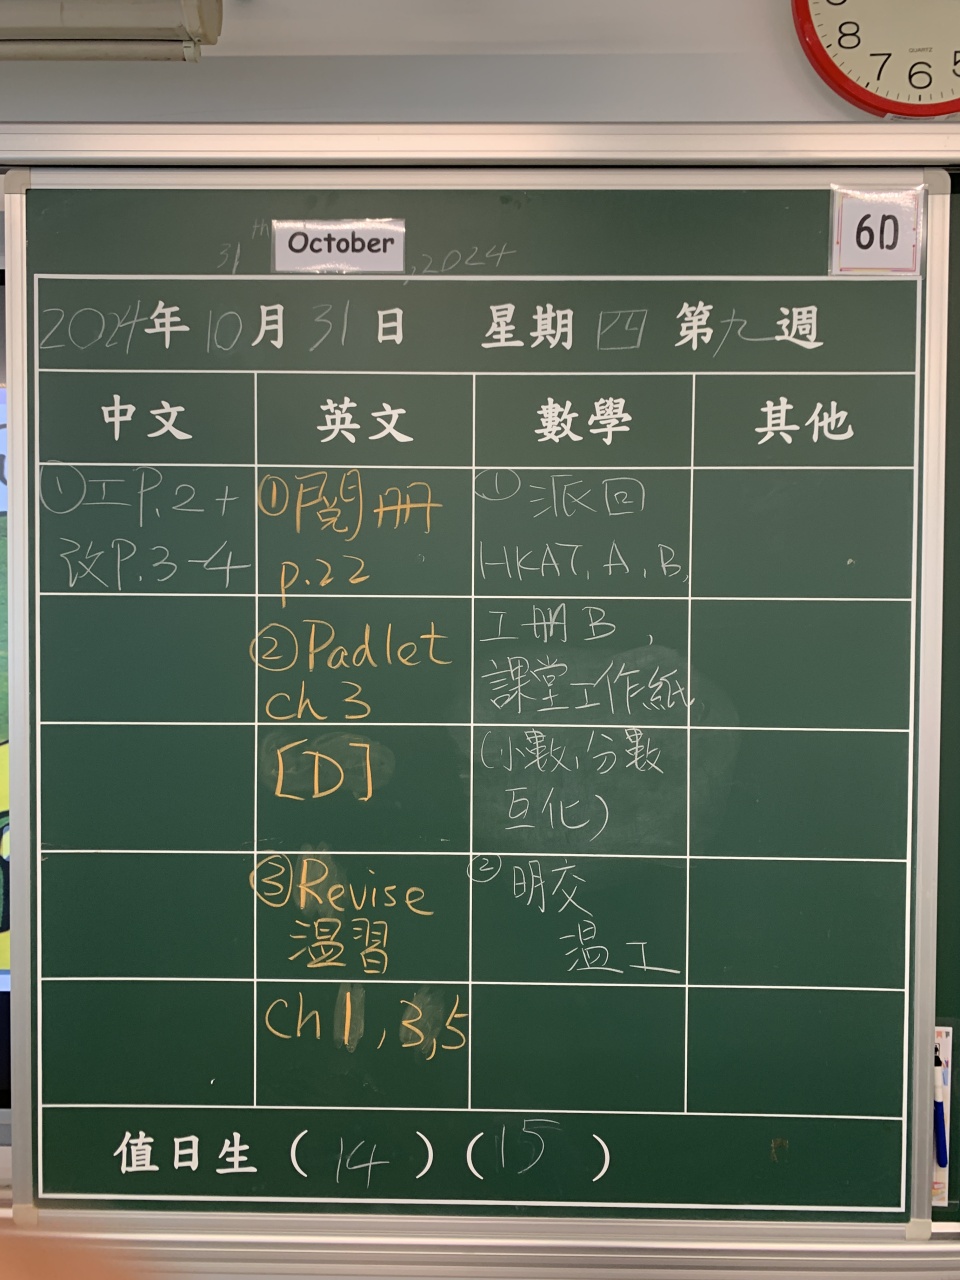 8 7 6 5
QUARTZ
6D
31th October, 2024
2024年10月31日 星期四 第九週
中文 英文 數學 其他
①工P.2+
改P.3-4
①閱冊
p.22
②Padlet
ch 3
[D]
③Revise
溫習
Ch 1, 3, 5
①派回
HKAT, A, B,
工冊B,
課堂工作紙
(小數,分數
互化)
②明交
溫工
值日生 (14) (15)